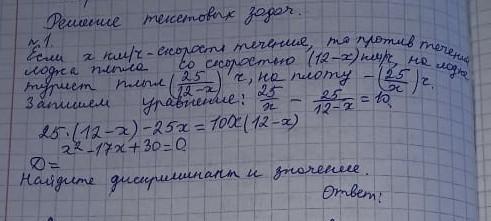 Решение текстовых задач.
№1.
Если x км/ч - скорость течения, то против течения
лодка плыла со скоростью (12-x) км/ч, на лодке
турист плыл (25/(12-x)) ч, на плоту - (25/x) ч.
Запишем уравнение: 25/x - 25/(12-x) = 10.
25·(12-x)-25x=10x(12-x)
x²-17x+30=0
D=
Найдите дискриминант и значение.
Ответ: